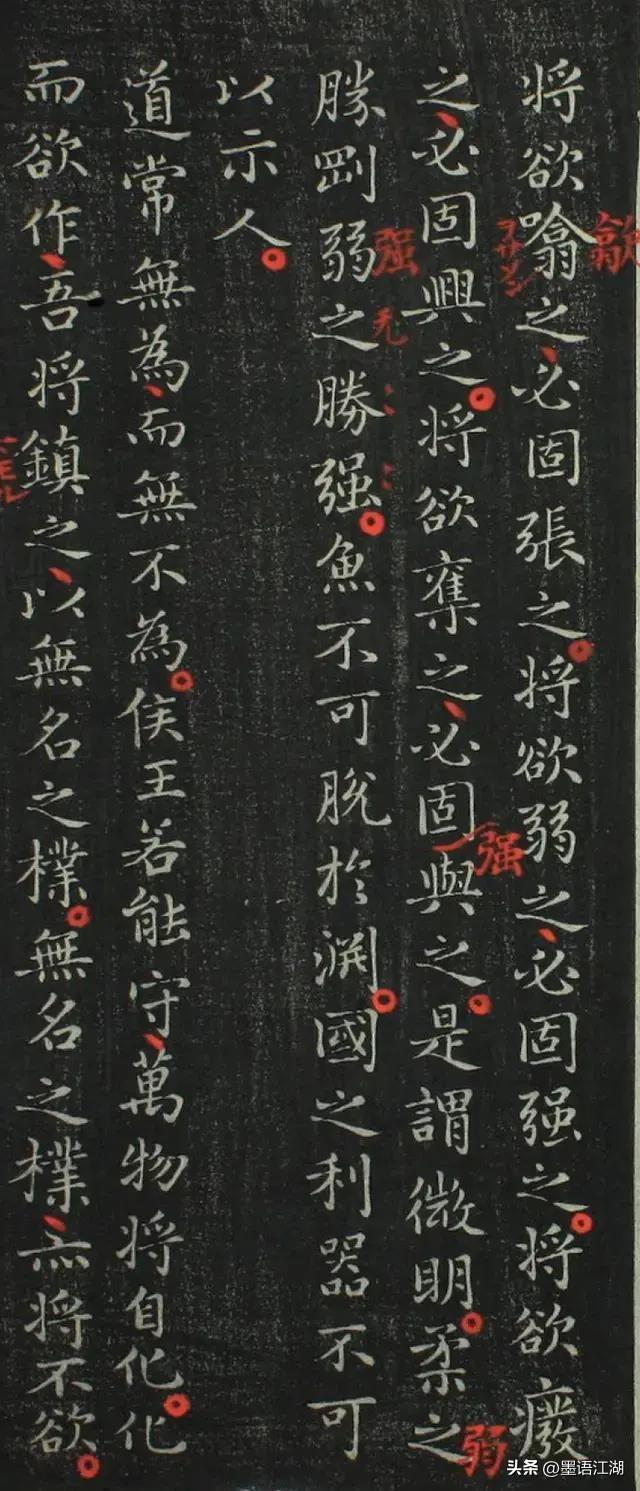 将欲噏之必固張之将欲弱之必固强之将欲癈
之必固興之将欲奪之必固與之是謂微明柔之
勝剛弱之勝强魚不可脱於渊國之利器不可
以示人
道常無為而無不為侯王若能守萬物将自化化
而欲作吾将鎮之以無名之樸無名之樸亦将不欲
歙
强
无
强
弱
头条 @墨语江湖